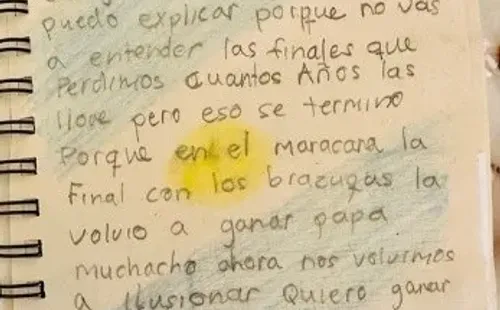 puedo explicar porque no vas
a entender las finales que
Perdimos cuantos Años las
llore pero eso se termino
Porque en el maracana la
Final con los brazugas la
volvio a ganar papa
muchacho ahora nos volvimos
a ilusionar Quiero ganar